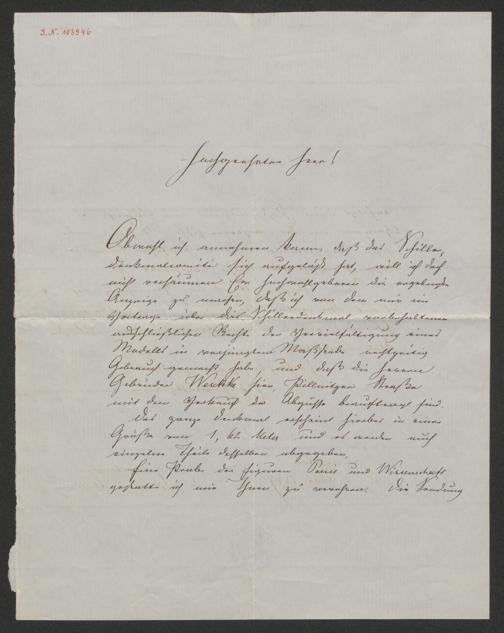 I. N. 103946
Hochgeehrter Herr!
Obwohl ich annehmen kann, daß das Schiller-
denkmalcomité sich aufgelöst hat, will ich doch
nicht versäumen Ew Hochwohlgeboren die ergebenste
Anzeige zu machen, daß ich von dem mir im
Vertrage über das Schillerdenkmal vorbehaltenen
ausschließlichen Rechte der Vervielfältigung eines
Modells in verjüngtem Maßstabe
Gebrauch gemacht habe, und daß die Herren
Gebrüder Weschke hier, Pillnitzer Straße
mit dem Verkauf der Abgüsse beauftragt sind.
Das ganze Denkmal erscheint hierbei in einer
Größe von 1,62 Meter und es werden auch
einzelne Theile desselben abgegeben.
Eine Probe der Figuren Poesie und Wissenschaft
gestatte ich mir Ihnen zu verehren. Die Sendung